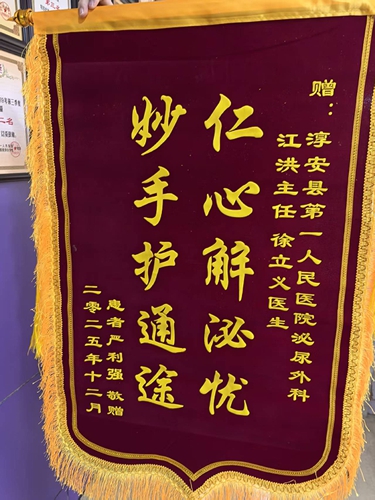 赠：
淳安县第一人民医院泌尿外科
江洪主任 徐立义医生
仁心解泌忧
妙手护通途
患者严利强 敬赠
二零二五年十二月
二名